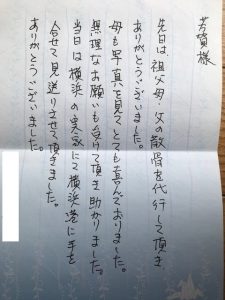 芳賀様
先日は祖父母・父の散骨を代行して頂き
ありがとうございました。
母も写真を見てとても喜んでおりました。
無理なお願いも受けて頂き助かりました。
当日は横浜の実家にて横浜港に手を
合せて見送りさせて頂きました。
ありがとうございました。